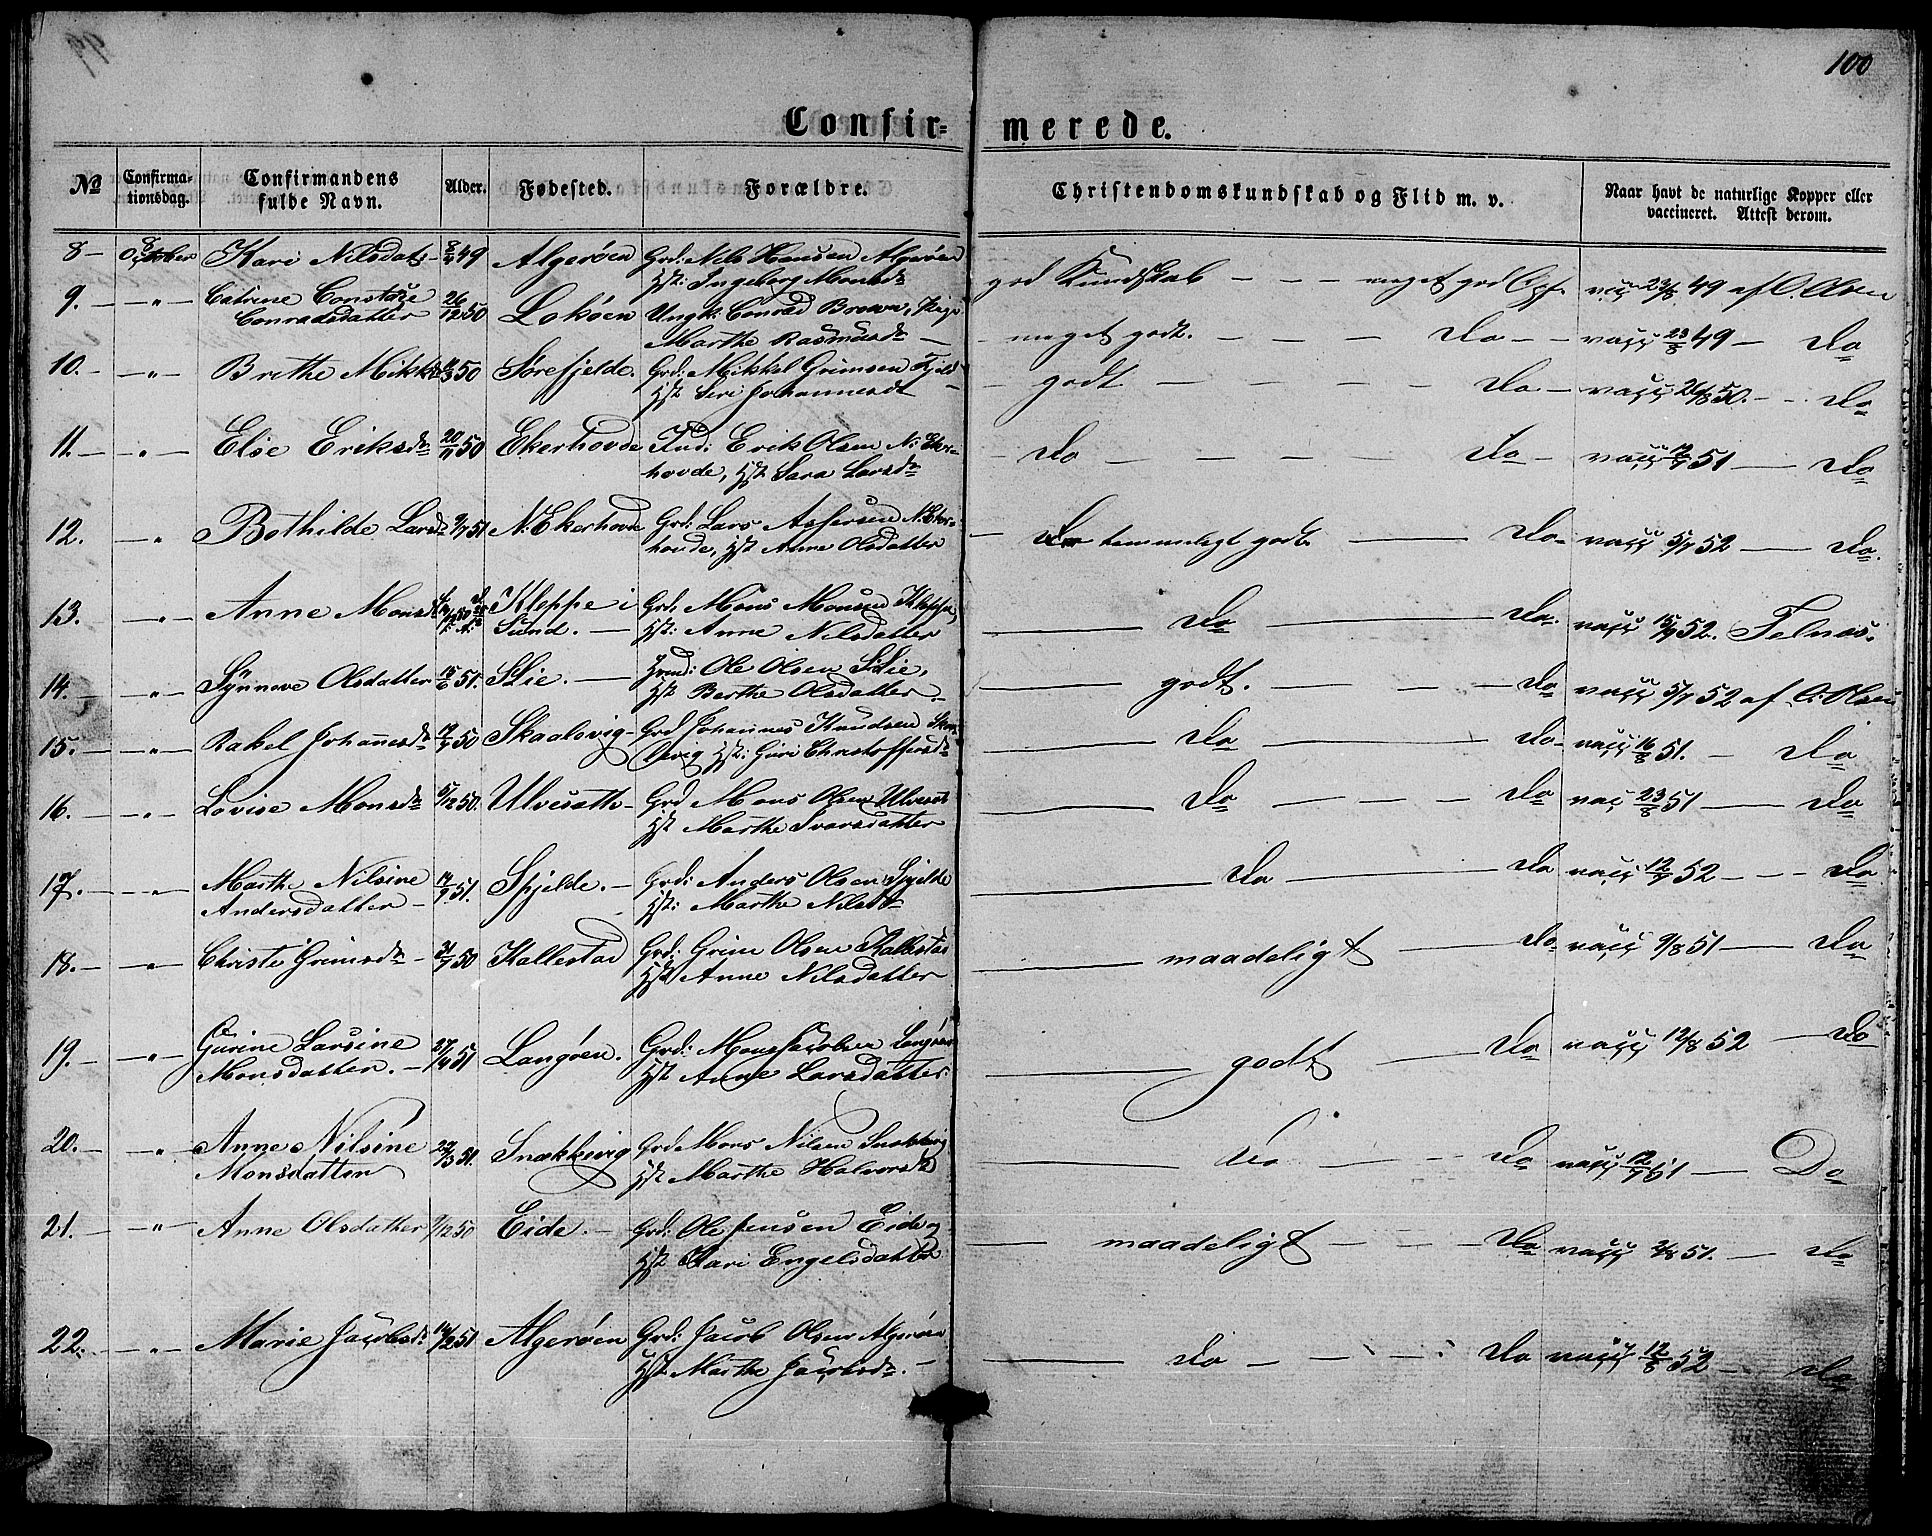 100
Confir- merede.
No Confirma-tionsdag. Confirmandens fulde Navn. Alder. Fødested. Forældre. Christendomskundskab og Flid m. v. Naar havt de naturlige Kopper eller vaccineret. Attest derom.
8 – 8 October Kari Nilsdatr – 49 Algerøen Grd: Nils Hansen Algerøen
Hst: Ingeborg Monsdr god Kundskab – – – meget god Opf. vacc 23/8 49 af O. Olsen
9. – „ – Catrine Constance 26/12 50 Lokøen Ungk. Conrad Brown, Pige
Conradsdatter Marthe Rasmusdr – meget godt. – – – Do – – vacc 23/8 49 – Do
10. – „ – Brithe Mikkds 50 Sørefjelde. Grd: Mikkel Grimsen Fjeld –
Hst Siri Johannesdt – godt – – – – Do. – vacc 26/8 50. – – Do
11. – „ – Else Eriksdr 20/11 50 Ekerhovde Ind: Erik Olsen N: Eker-
hovde, Hst Sara Larsdr – Do – – – – – Do – vacc 12/7 51 – Do
12. – „ Bothilde Larsdr 9/7 51 N: Ekerhovde Grd: Lars Asfersen N: Eker-
hovde, Hst Anne Olsdatter – temmeligt godt. – Do – vacc 5/7 52 – Do.
13. – „ – Anne Monsdt 50 Kleppe i Grd: Mons Monsen Kleppe,
Sund. – Hst: Anne Nilsdatter – Do – Do. vacc 15/9 52. Telnæs.
14. – „ – Synneve Olsdatter 15/6 51. S Lie. – Hmd: Ole Olsen S Lie,
Hst Berthe Olsdatter. – godt. – – – Do vacc 5/7 52 af O: Olsen
15. – „ – Rakel Johanesdr 50 Skaalevig – Grd Johannes Knudsen Skaa-
levig Hst: Guri Christoffersdr – Do – Do – vacc 16/8 51. – Do
16. – „ – Lovise Monsdr 5/12 50. Ulvesæth – Grd Mons Olsen Ulvesæt
Hst Marthe Ivarsdatter – Do – – – – Do vac 23/8 51 – Do
17. – „ – Marthe Nilsine 51. Spjelde. – Grd: Anders Olsen Spjelde
Andersdatter – Hst: Marthe Nilsdr – Do – Do vacc 12/7 52 – – – Do
18. – „ – Christi Grimsdr – 50 Kallestad Grd: Grim Olsen Kallestad
Hst Anne Nilsdatter – maadeligt – Do – vacc 9/8 51 – Do
19. – „ Gurine Larsine 27/4 51 Langøen. Grd: Mons Jacobsen Langøen
Monsdatter. – Hst Anne Larsdatter – godt – Do vacc 12/8 52 – Do
20. – „ – Anne Nilsine 22/3 51. Snekkevig Grd Mons Nilsen Snekkevig
Monsdatter Hst Marthe Halvorsdr – Do – – – Do vacc 12/7 51 – Do
21. – „ – Anne Olsdatter 9/12 50 Eide. – Grd: Ole Jensen Eide og
Hst Kari Engelsdatter – maadeligt – – – Do vacc 51. – Do
22. – „ – Marie Jacobsdr 14/2 51 Algerøen Grd: Jacob Olsen Algerøen
Hst Marthe Jacobsdr. – Do – – – – Do vacc 12/8 52 – – Do